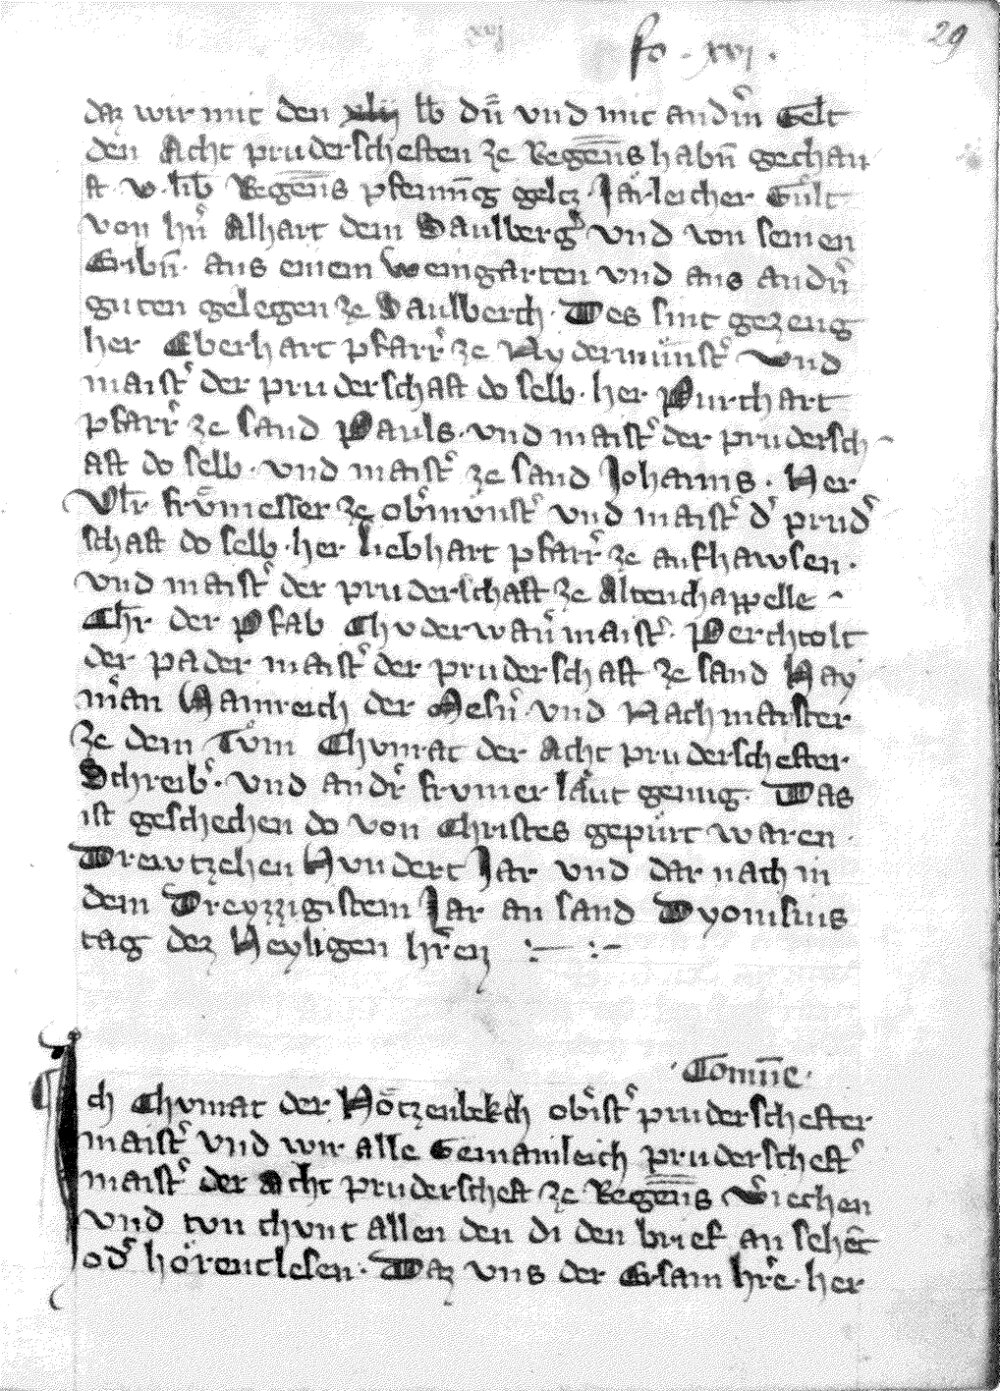 29
fo . xvi .
daz wir mit den xliij lb dn̄ vnd mit andˀm Gelt
den Acht pruderscheften ze Regēns habn̄ gechau
ft v . lib Regēns pfennīg geltz Järleicher Gült
von hˀn Alhart dem Saulbergˀ vnd von seinen
Eribn̄ . aus einem weingarten vnd aus andˀn
guten gelegen ze Saulberch . Des sint gezeug
her Eberhart pfarrˀ ze Nydermünstˀ vnd
maistˀ der pruderschaft do selb . her Purchart
pfarrˀ ze sand Pauls . vnd maistˀ der prudersch
aft do selb . vnd maistˀ ze sand Johanns . Her
Vlˀr frümesser ze obˀmunstˀ vnd maistˀ dˀ prudˀ
schaft do selb . her liebhart pfarrˀ ze aufhawsen .
vnd maistˀ der pruderschaft ze Altenchappelle
Chˀr der Pfab Chvderwanˀ maistˀ . Perchtolt
der pader maistˀ der pruderschaft ze sand Hay
mˀan Hainreich der Aesnˀ . vnd Nachmaister
ze dem Tům Chvnrat der Acht pruderschefter
Schreibˀ . vnd andˀr frumer läut genug . Das
ist geschechen do von Christes gepürt waren .
Drewtzehen Hvndert Jar vnd dar nach in
dem Dreyzzigistem Jar an sand Dyonisius
tag dez Heyligen hˀren
Com̄ne .
Ich Chvnrat der Nötzenbekch obˀistˀ pruderschefter
maistˀ vnd wir alle Gemainleich pruderscheftˀ
maistˀ der Acht pruderscheft ze Regēns vˀiechen
vnd tvn chvnt allen den di den brief an sehēt
odˀ hörent lesen . Daz vns der Ersam hˀre . her